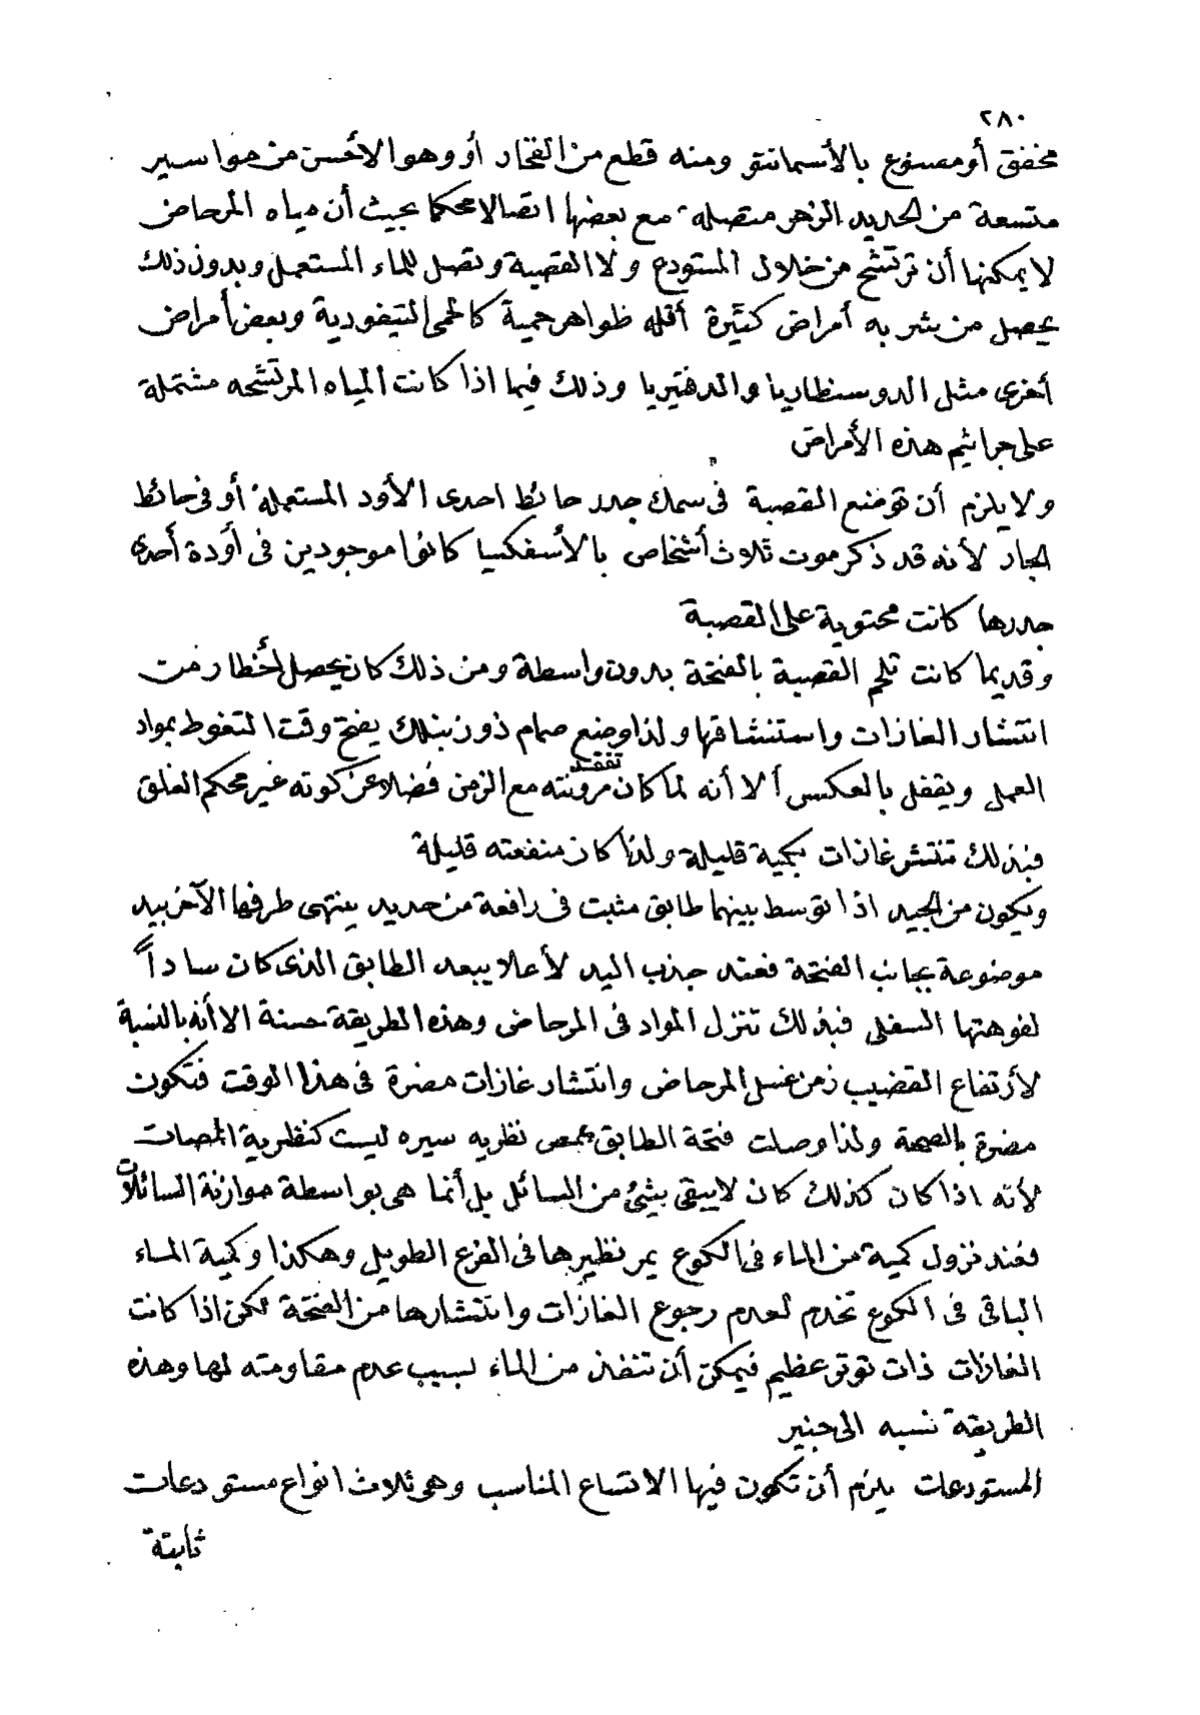 ٢٨٠
مخفق أو مصنوع بالأسمانتو ومنه قطع من الفخار أو وهو الأحسن من مواسير
متسعة من الحديد الزهر متصلة مع بعضها اتصالا محكما بحيث أن مياه المرحاض
لا يمكنها أن ترتشح من خلال المستودع ولا القصبة وتصل للماء المستعمل وبدون ذلك
يحصل من شربه أمراض كثيرة أقله ظواهر حمية كالحمى التيفودية وبعض أمراض
أخرى مثل الدوسنطاريا والدفتيريا وذلك فيما اذا كانت المياه المرتشحه مشتملة
على جراثيم هذه الأمراض
ولا يلزم أن توضع القصبة فى سمك جدر حائط احدى الأود المستعملة أو فى حائط
الجار لأنه قد ذكر موت ثلاث أشخاص بالأسفكسيا كانوا موجودين فى أودة أحدى
جدرها كانت محتوية على القصبة
وقديما كانت تلحم القصبة بالفتحة بدون واسطة ومن ذلك كان يحصل أخطار من
انتشار الغازات واستنشاقها ولذا وضع صمام ذو زنبلك يفتح وقت التغوط بمواد
العمل ويقفل بالعكس ألا أنه لما كان تفقد مرونته مع الزمن فضلا عن كونه غير محكم الغلق
فبذلك تنتشر غازات بكمية قليلة ولذا كان منفعته قليلة
ويكون من الجيد اذا توسط بينهما طابق مثبت فى رافعة من حديد ينتهى طرفها الآخر بيد
موضوعة بجانب الفتحة فعند جذب اليد لأعلا يبعد الطابق الذى كان ساداً
لفوهتها السفلى فبذلك تنزل المواد فى المرحاض وهذه الطريقة حسنة الا أنه بالنسبة
لأرتفاع القضيب زمن غسل المرحاض وانتشار غازات مضرة فى هذا الوقت فتكون
مضرة بالصحة ولذا وصلت فتحة الطابق بمص نظريه سيره ليست كنظرية الممصات
لأنه اذا كان كذلك كان لا يبقى بشئ من السائل بل أنما هى بواسطة موازنة السائلات
فعند نزول كمية من الماء فى الكوع يمر نظيرها فى الفرع الطويل وهكذا وكمية الماء
الباقى فى الكوع تخدم لعدم رجوع الغازات وانتشارها من الفتحة لكن اذا كانت
الغازات ذات توتر عظيم فيمكن أن تنفذ من الماء لسبب عدم مقاومته لها وهذه
الطريقة نسبه الى جنير
المستودعات يلزم أن تكون فيها الاتساع المناسب وهى ثلاث انواع مستودعات
ثابتة